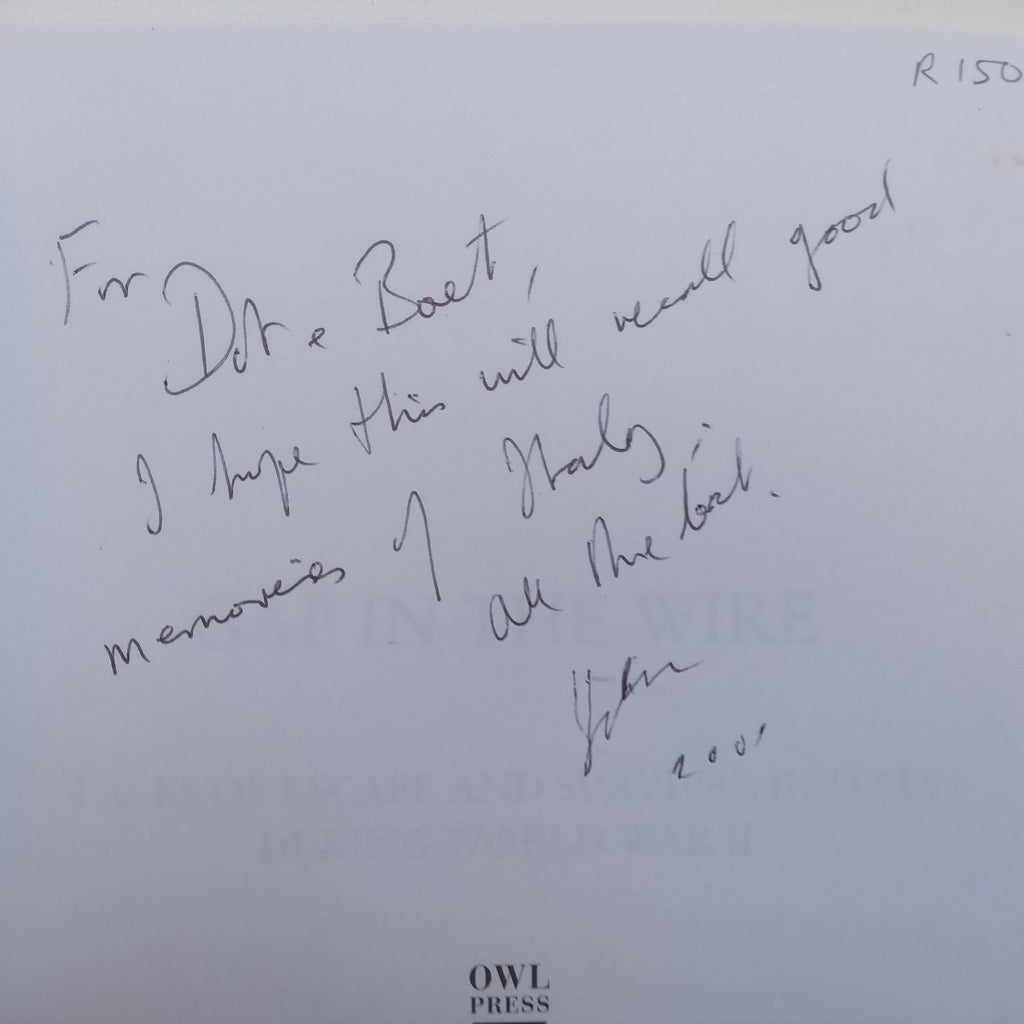 R 150
For Dot & Boet,
I hope this will recall good
memories of Italy.
All the best.
John
2001
GAP IN THE WIRE
TALES OF ESCAPE AND SURVIVAL IN ITALY
DURING WORLD WAR II
OWL
PRESS